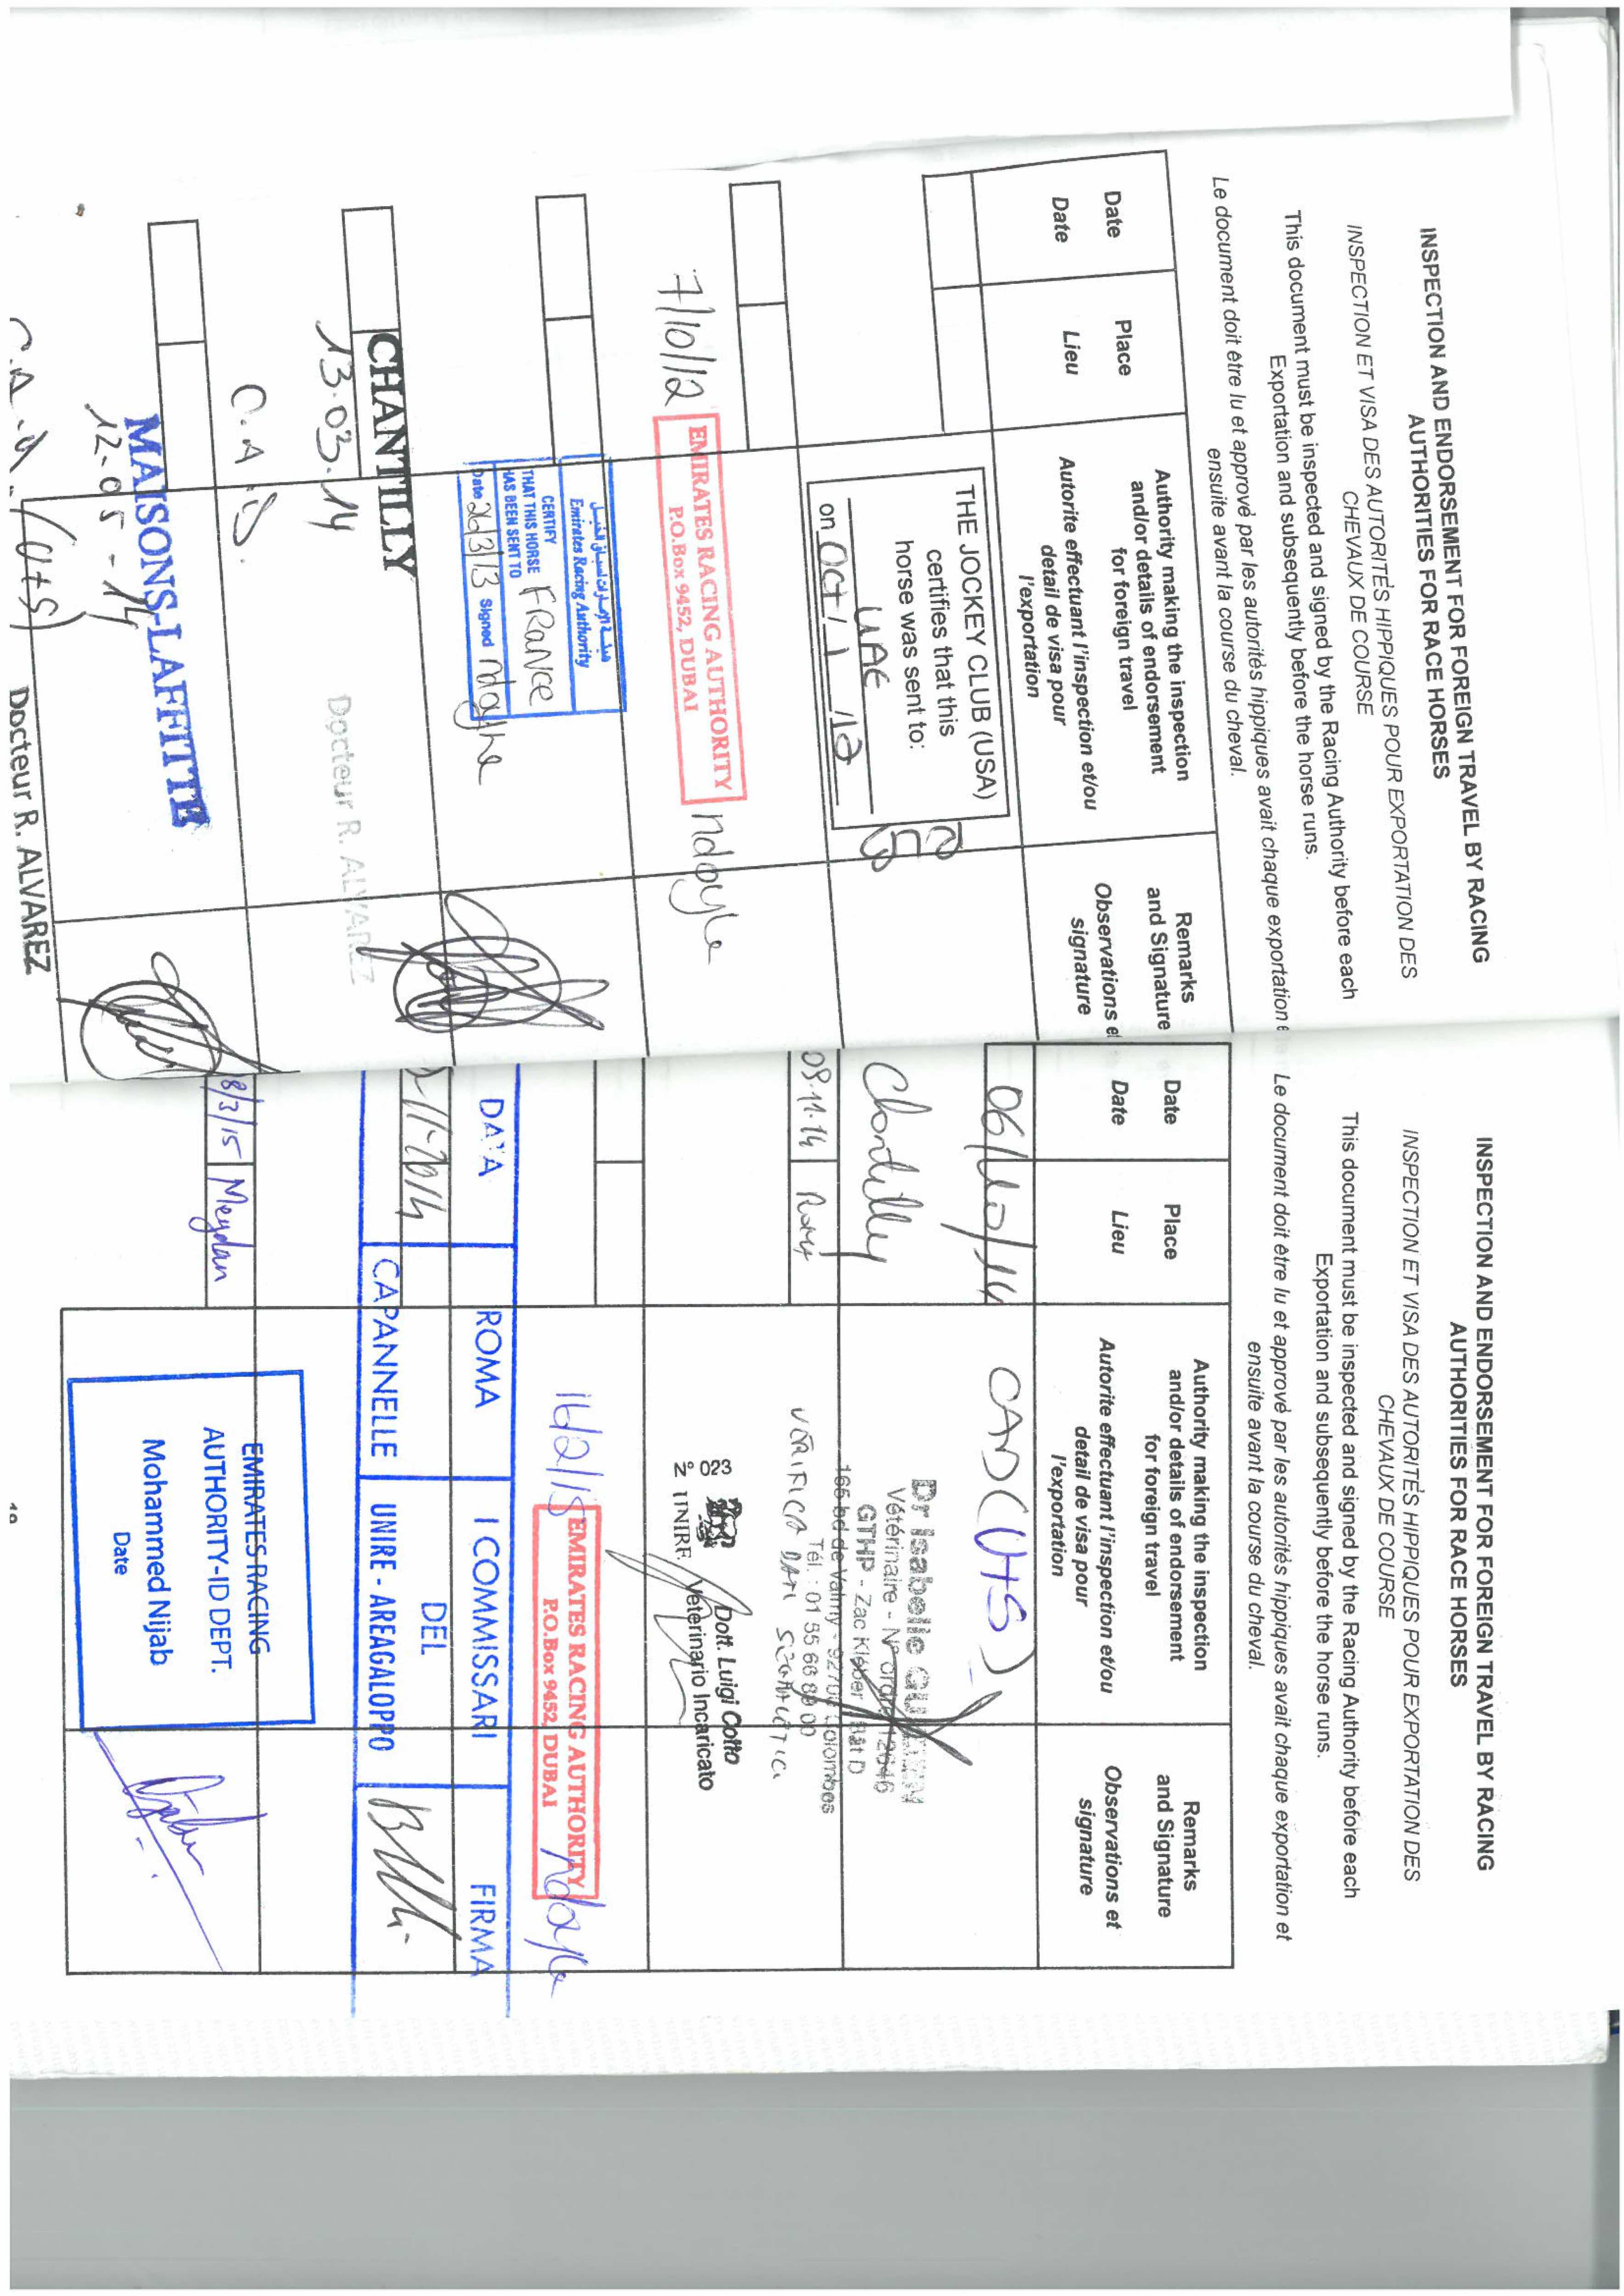 INSPECTION AND ENDORSEMENT FOR FOREIGN TRAVEL BY RACING
AUTHORITIES FOR RACE HORSES
INSPECTION ET VISA DES AUTORITÈS HIPPIQUES POUR EXPORTATION DES
CHEVAUX DE COURSE
This document must be inspected and signed by the Racing Authority before each
Exportation and subsequently before the horse runs.
Le document doit ètre lu et approvè par les autoritès hippiques avait chaque exportation e
ensuite avant la course du cheval.
Date
Date
Place
Lieu
Authority making the inspection
and/or details of endorsement
for foreign travel
Autorite effectuant l'inspection et/ou
detail de visa pour
l'exportation
Remarks
and Signature
Observations et
signature
THE JOCKEY CLUB (USA)
certifies that this
horse was sent to:
UAE
on Oct 1 112
7/10/12
EMIRATES RACING AUTHORITY
P.O.Box 9452, DUBAI
ndoyle
هيئة الإمارات لسباق الخيل
Emirates Racing Authority
CERTIFY
THAT THIS HORSE
HAS BEEN SENT TO
FRANCE
Date 26/3/13 Signed ndoyle
CHANTILLY
13.03.14
Docteur R. ALVAREZ
C.A.D.
MAISONS-LAFFITTE
12-05-14
(UtS)
Docteur R. ALVAREZ
INSPECTION AND ENDORSEMENT FOR FOREIGN TRAVEL BY RACING
AUTHORITIES FOR RACE HORSES
INSPECTION ET VISA DES AUTORITÈS HIPPIQUES POUR EXPORTATION DES
CHEVAUX DE COURSE
This document must be inspected and signed by the Racing Authority before each
Exportation and subsequently before the horse runs.
Le document doit ètre lu et approvè par les autoritès hippiques avait chaque exportation et
ensuite avant la course du cheval.
Date
Date
Place
Lieu
Authority making the inspection
and/or details of endorsement
for foreign travel
Autorite effectuant l'inspection et/ou
detail de visa pour
l'exportation
Remarks
and Signature
Observations et
signature
06/10/14
CAD (UtS)
Chantilly
Dr Isabelle
Vétérinaire - N° ordre 12646
GTHP - Zac Kléber Bât D
165 bd de Valmy - 92700 Colombes
Tél. : 01 55 66 89 00
09.11.14
Roma
VERIFICA DATI SEGNALETICI
N° 023
UNIRE
Dott. Luigi Cotto
Veterinario Incaricato
16/2/15
EMIRATES RACING AUTHORITY
P.O.Box 9452, DUBAI
ndoyle
DATA ROMA I COMMISSARI FIRMA
DEL
-11-2014 CAPANNELLE UNIRE - AREAGALOPPO
8/3/15 Meydan
EMIRATES RACING
AUTHORITY-ID DEPT.
Mohammed Nijab
Date